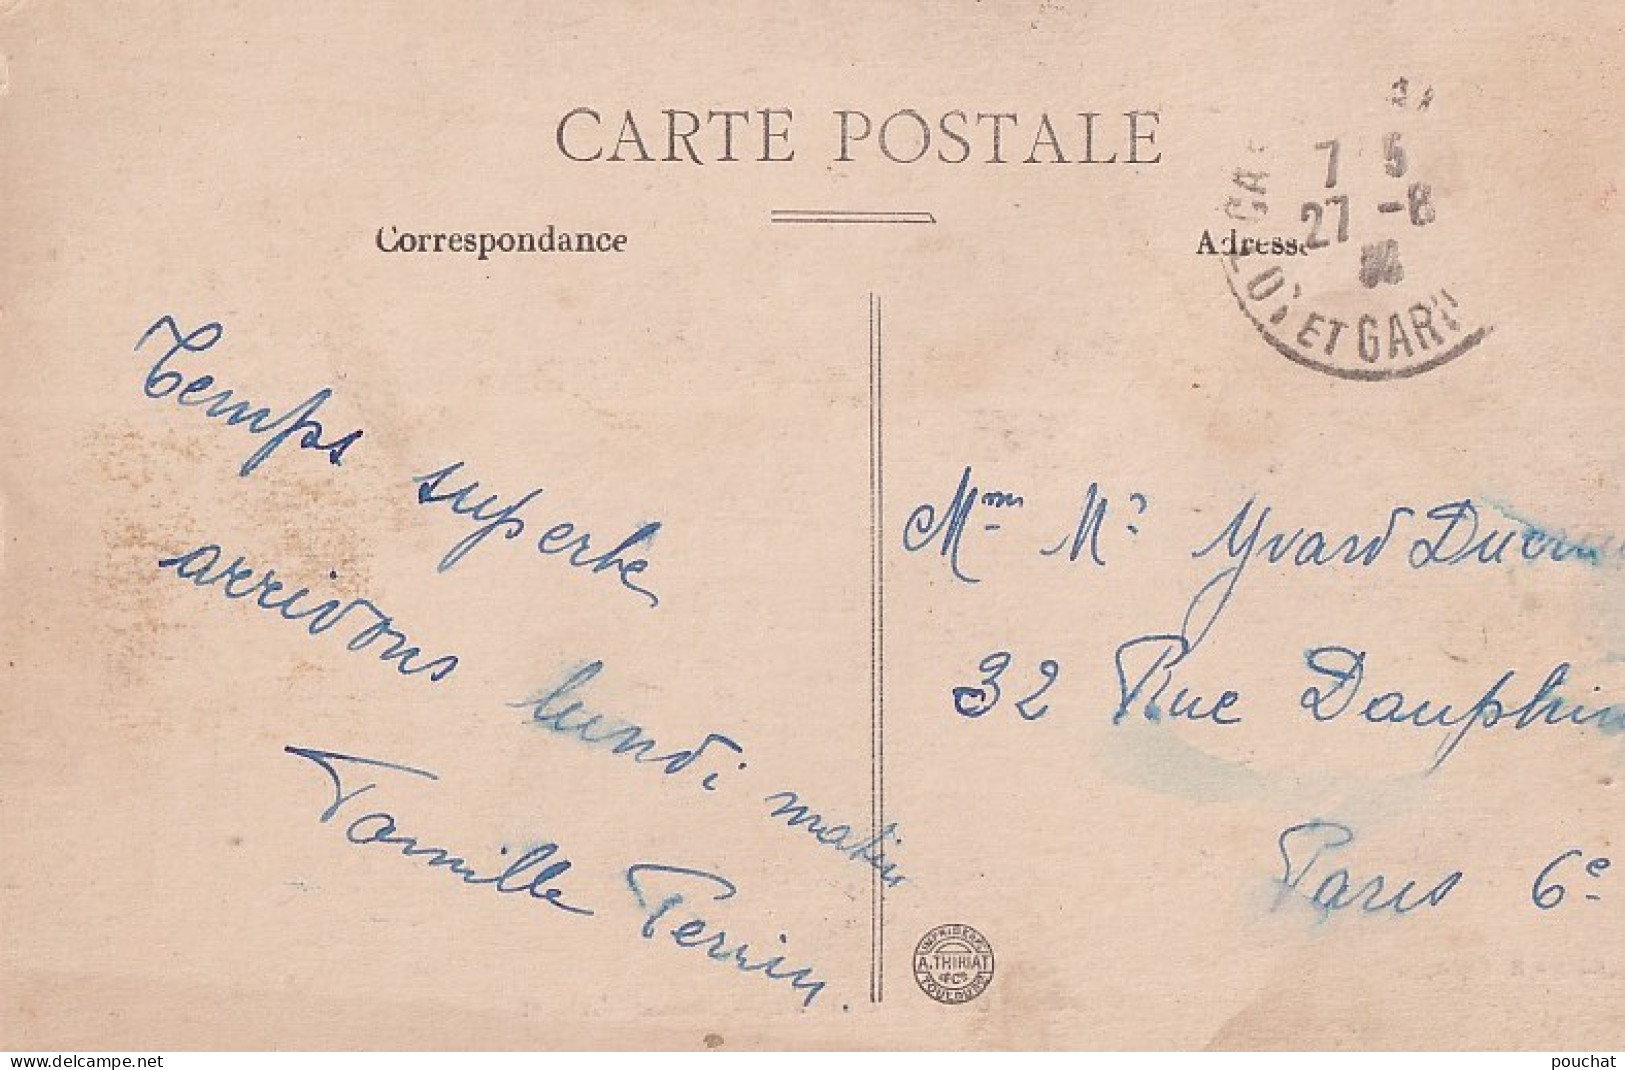 CARTE POSTALE
Correspondance
Adresse
7 5
27 -8
ET GAR
Temps superbe
arrivons lundi matin
Famille Perrin.
Mme Mr Yvard
32 Rue Dauphin
Paris 6e
IMPRIMERIE
A. THIRIAT
& Cie
TOULOUSE
www.delcampe.net
pouchat